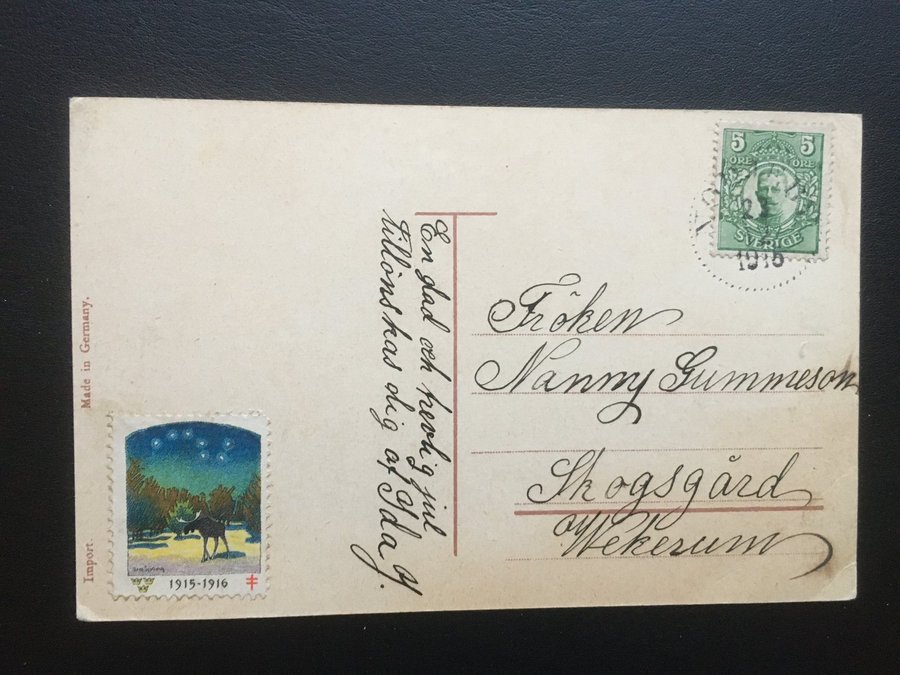 5 5
ÖRE ÖRE
SVERIGE
23
1915
En glad och trevlig jul
tillönskas dig af Ida G.
Fröken
Nanny Gummeson
Skogsgård
Wekerum
Import. Made in Germany.
1915-1916